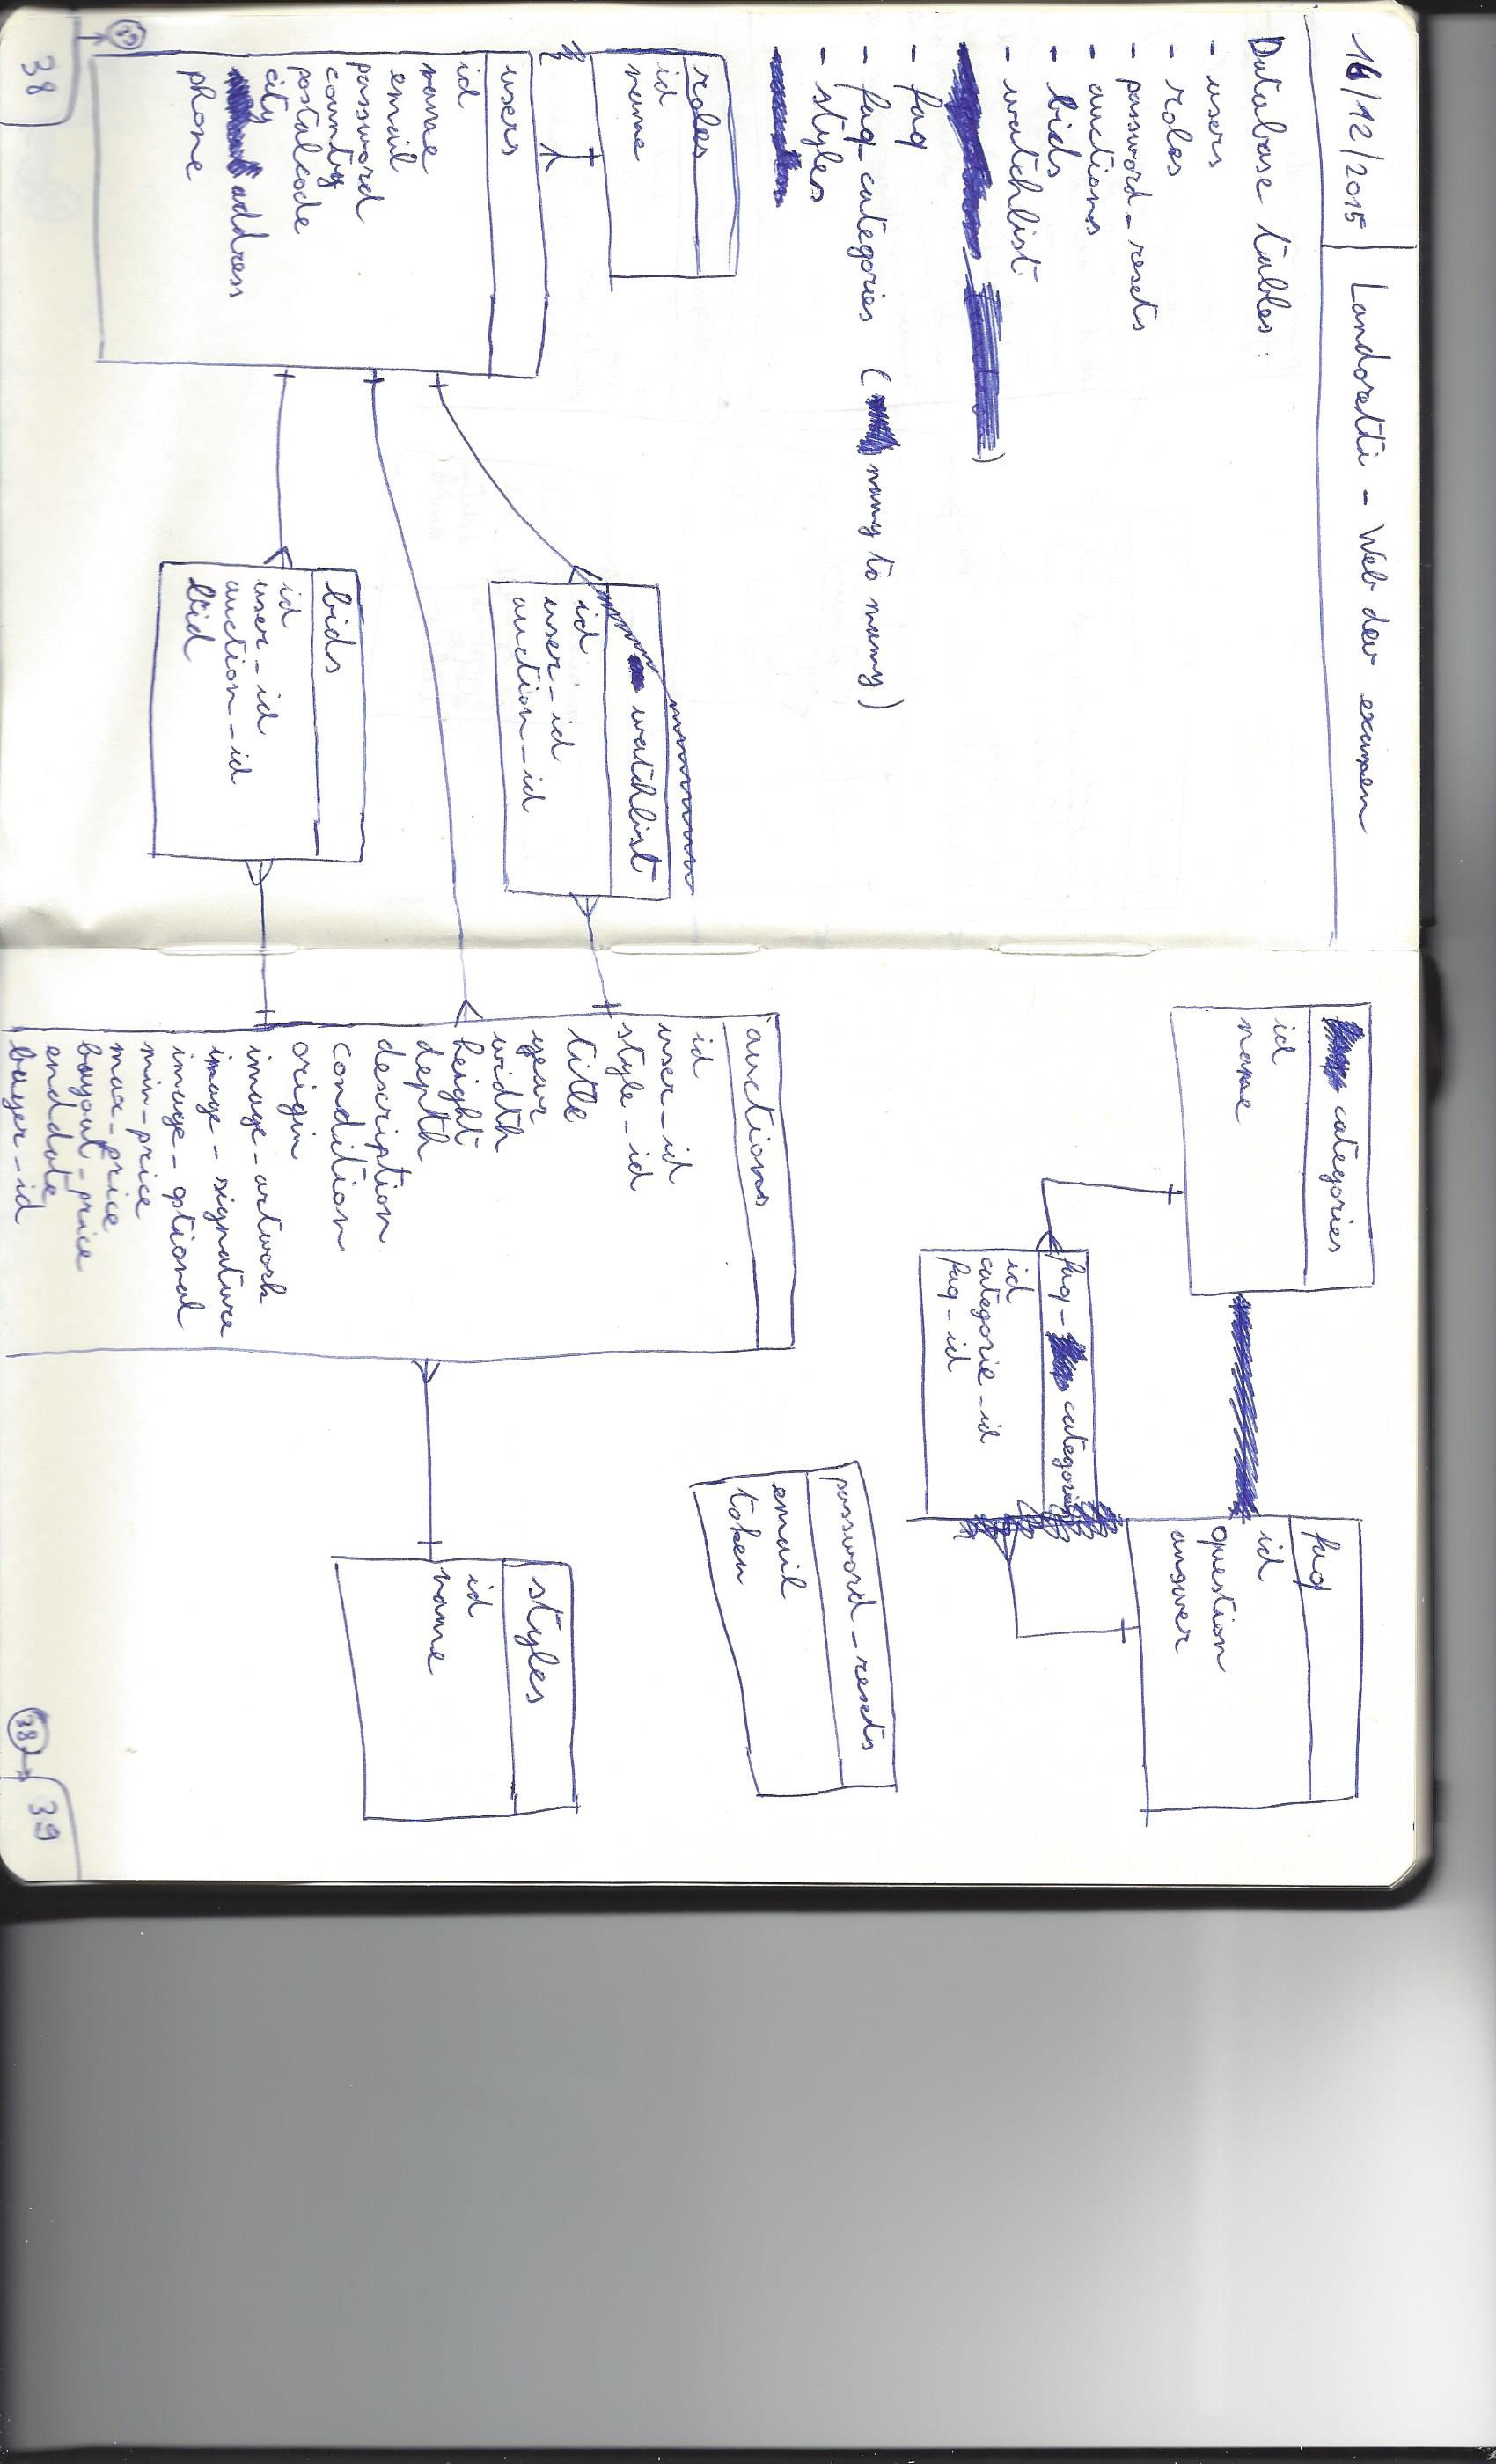 16/12/2015 Landoretti - Web dev examen
Database tables:
- users
- roles
- password_resets
- auctions
- bids
- watchlist
- faq
- faq_categories ( many to many)
- styles
roles
id
name
users
id
name
email
password
country
postalcode
city
address
phone
39
38
watchlist
id
user_id
auction_id
bids
id
user_id
auction_id
bid
categories
id
name
faq
id
question
answer
faq_ categories
id
categorie_id
faq_id
password_resets
email
token
auctions
id
user_id
style_id
title
year
width
height
depth
description
condition
origin
image_artwork
image_signature
image_optional
min_price
max_price
buyout_price
enddate
buyer_id
styles
id
name
38
39